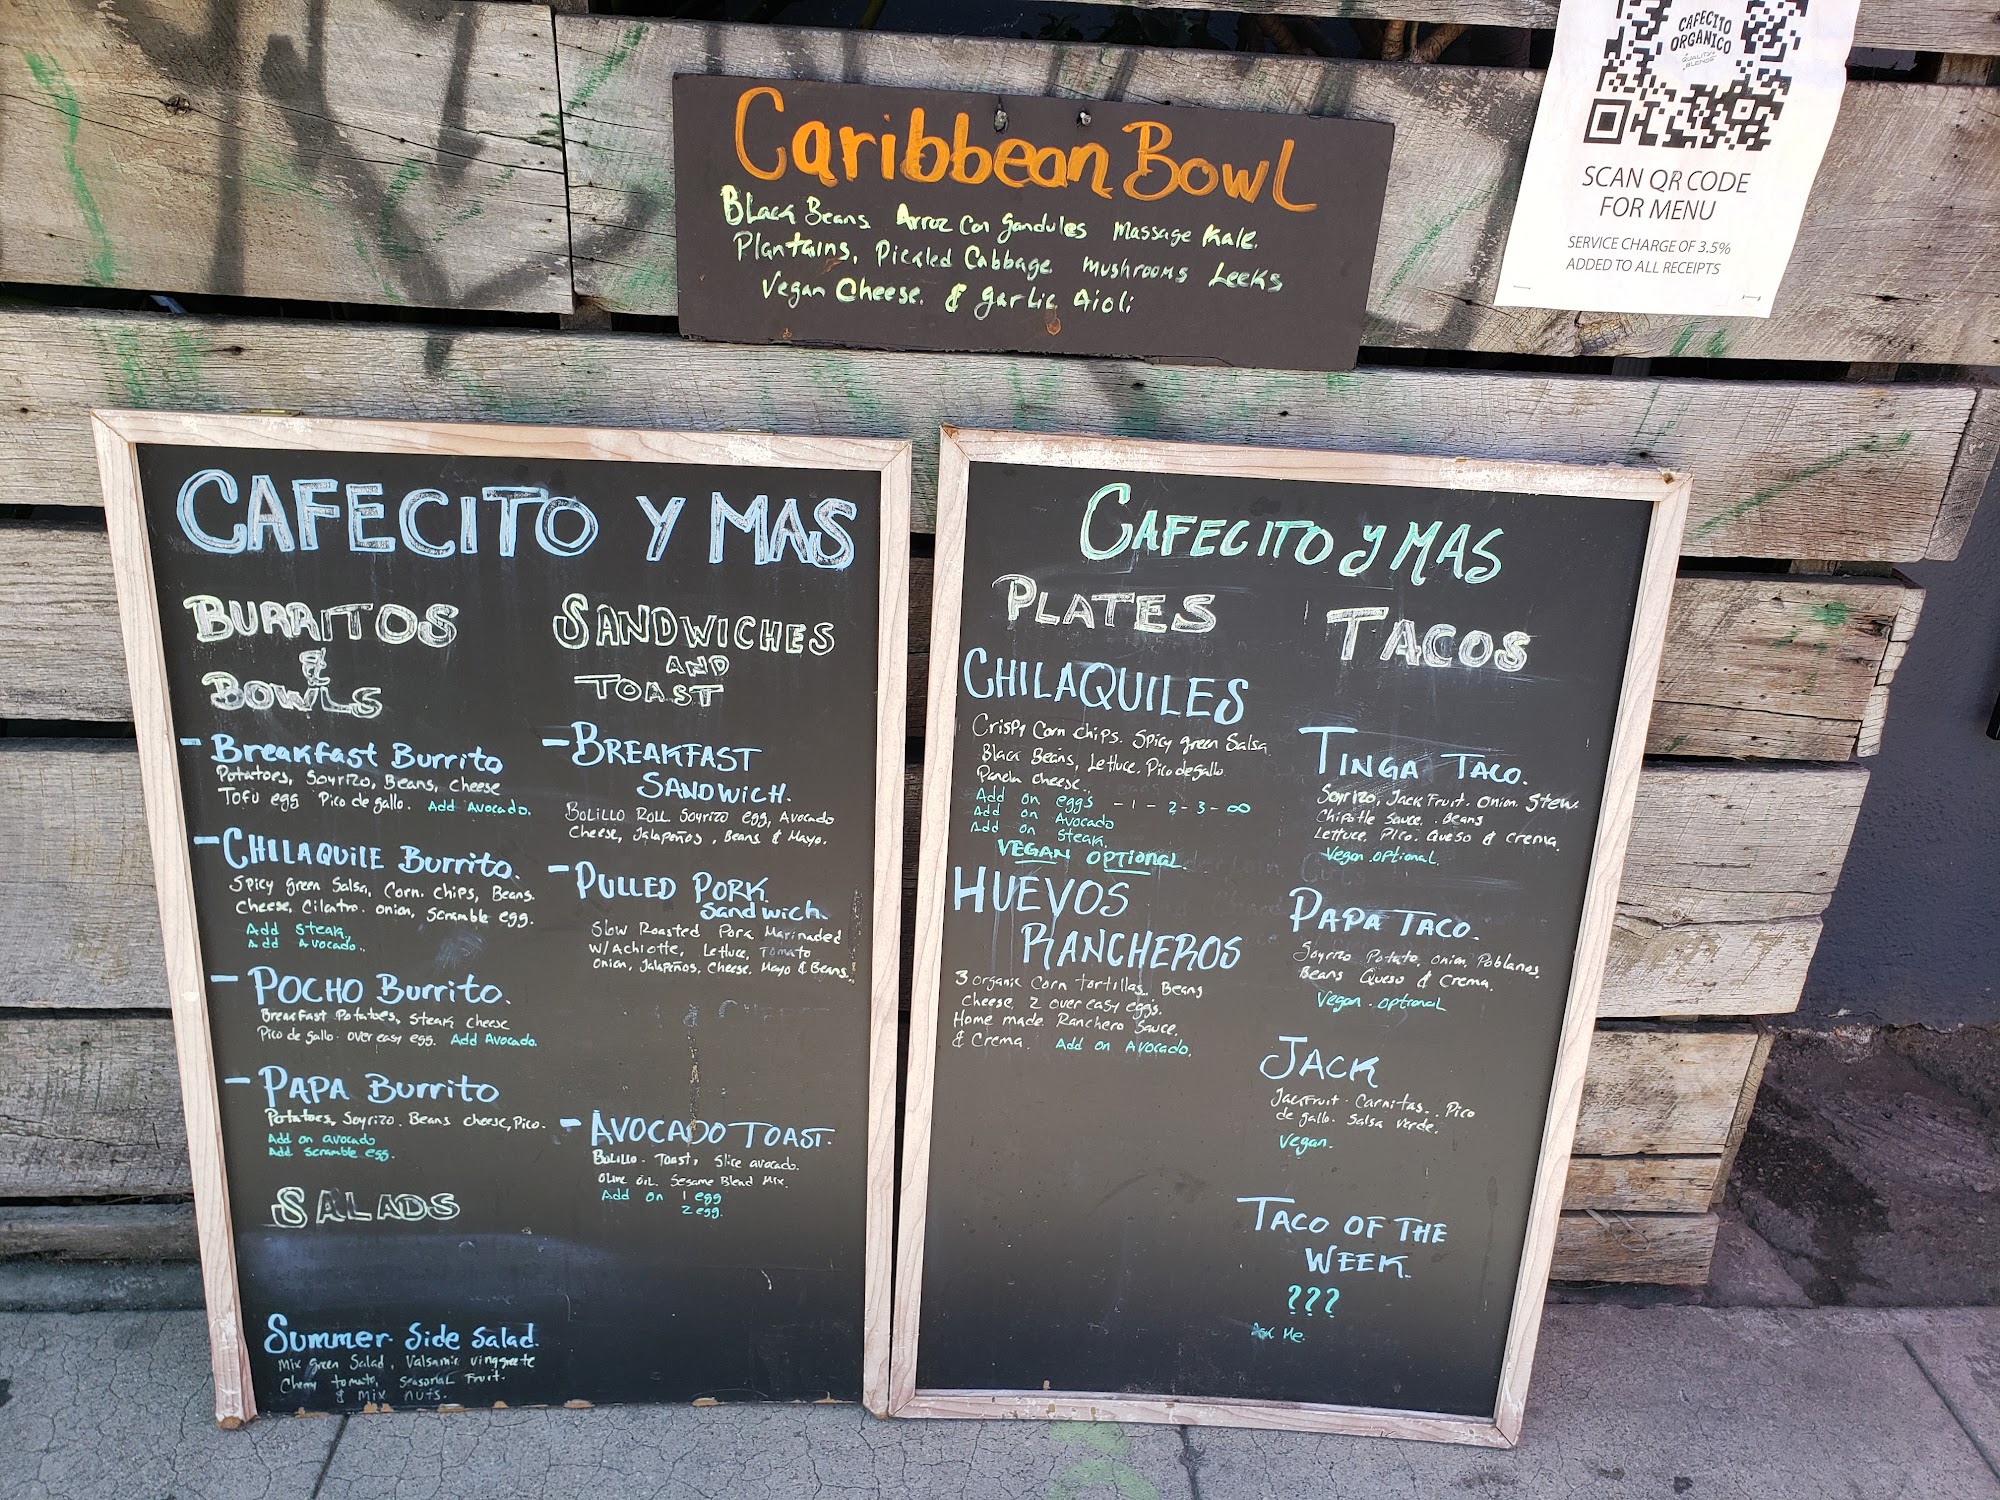 CAFECITO
ORGANICO
QUALITY
BLENDS
SCAN QR CODE
FOR MENU
SERVICE CHARGE OF 3.5%
ADDED TO ALL RECEIPTS
Caribbean Bowl
Black Beans Arroz Con gandules Massage Kale.
Plantains, Pickled Cabbage mushrooms Leeks
Vegan Cheese. & garlic Aioli
CAFECITO Y MAS
BURRITOS
&
BOWLS
- Breakfast Burrito
Potatoes, Soyrizo, Beans, Cheese
Tofu egg Pico de gallo. Add Avocado.
- CHILAQUILE Burrito.
Spicy green Salsa, Corn. chips, Beans.
Cheese, Cilantro. onion, scramble egg.
Add Steak.
Add Avocado.
- POCHO Burrito.
Breakfast Potatoes, steak cheese
Pico de gallo. over easy egg. Add Avocado.
- PAPA Burrito
Potatoes, Soyrizo. Beans cheese, Pico.
Add on avocado
Add scramble egg.
SALADS
Summer Side Salad.
Mix green Salad, Valsamic vinggrete
Cherry tomato, seasonal Fruit.
& mix nuts.
SANDWICHES
AND
TOAST
- BREAKFAST
SANDWICH.
BOLILLO ROLL Soyrizo egg, Avocado
Cheese, Jalapeños, Beans & Mayo.
- PULLED PORK
Sandwich.
Slow Roasted Pork Marinaded
w/Achiotte, Lettuce, Tomato
onion, Jalapeños, Cheese. Mayo & Beans.
- AVOCADO TOAST.
Bolillo. Toast, Slice avocado.
Olive oil. Sesame Blend Mix.
Add on 1 egg
2 egg.
CAFECITO Y MAS
PLATES
CHILAQUILES
Crispy Corn chips. Spicy green Salsa
Black Beans, Lettuce. Pico de gallo
Panela cheese.
Add on eggs - 1 - 2 - 3 - ∞
Add on Avocado
Add on Steak.
VEGAN OPTIONAL
HUEVOS
RANCHEROS
3 organic Corn tortillas. Beans
Cheese, 2 over easy eggs.
Home made Ranchero Sauce.
& Crema. Add on Avocado.
TACOS
TINGA TACO.
Soyrizo, JackFruit. Onion. Stew.
Chipotle Sauce. Beans
Lettuce, Pico. Queso & crema.
Vegan. optional.
PAPA TACO.
Soyrizo Potato, onion, Poblanos,
Beans Queso & Crema.
Vegan. optional
JACK
Jackfruit. Carnitas. Pico
de gallo. Salsa Verde.
Vegan.
TACO OF THE
WEEK.
???
Ask Me.